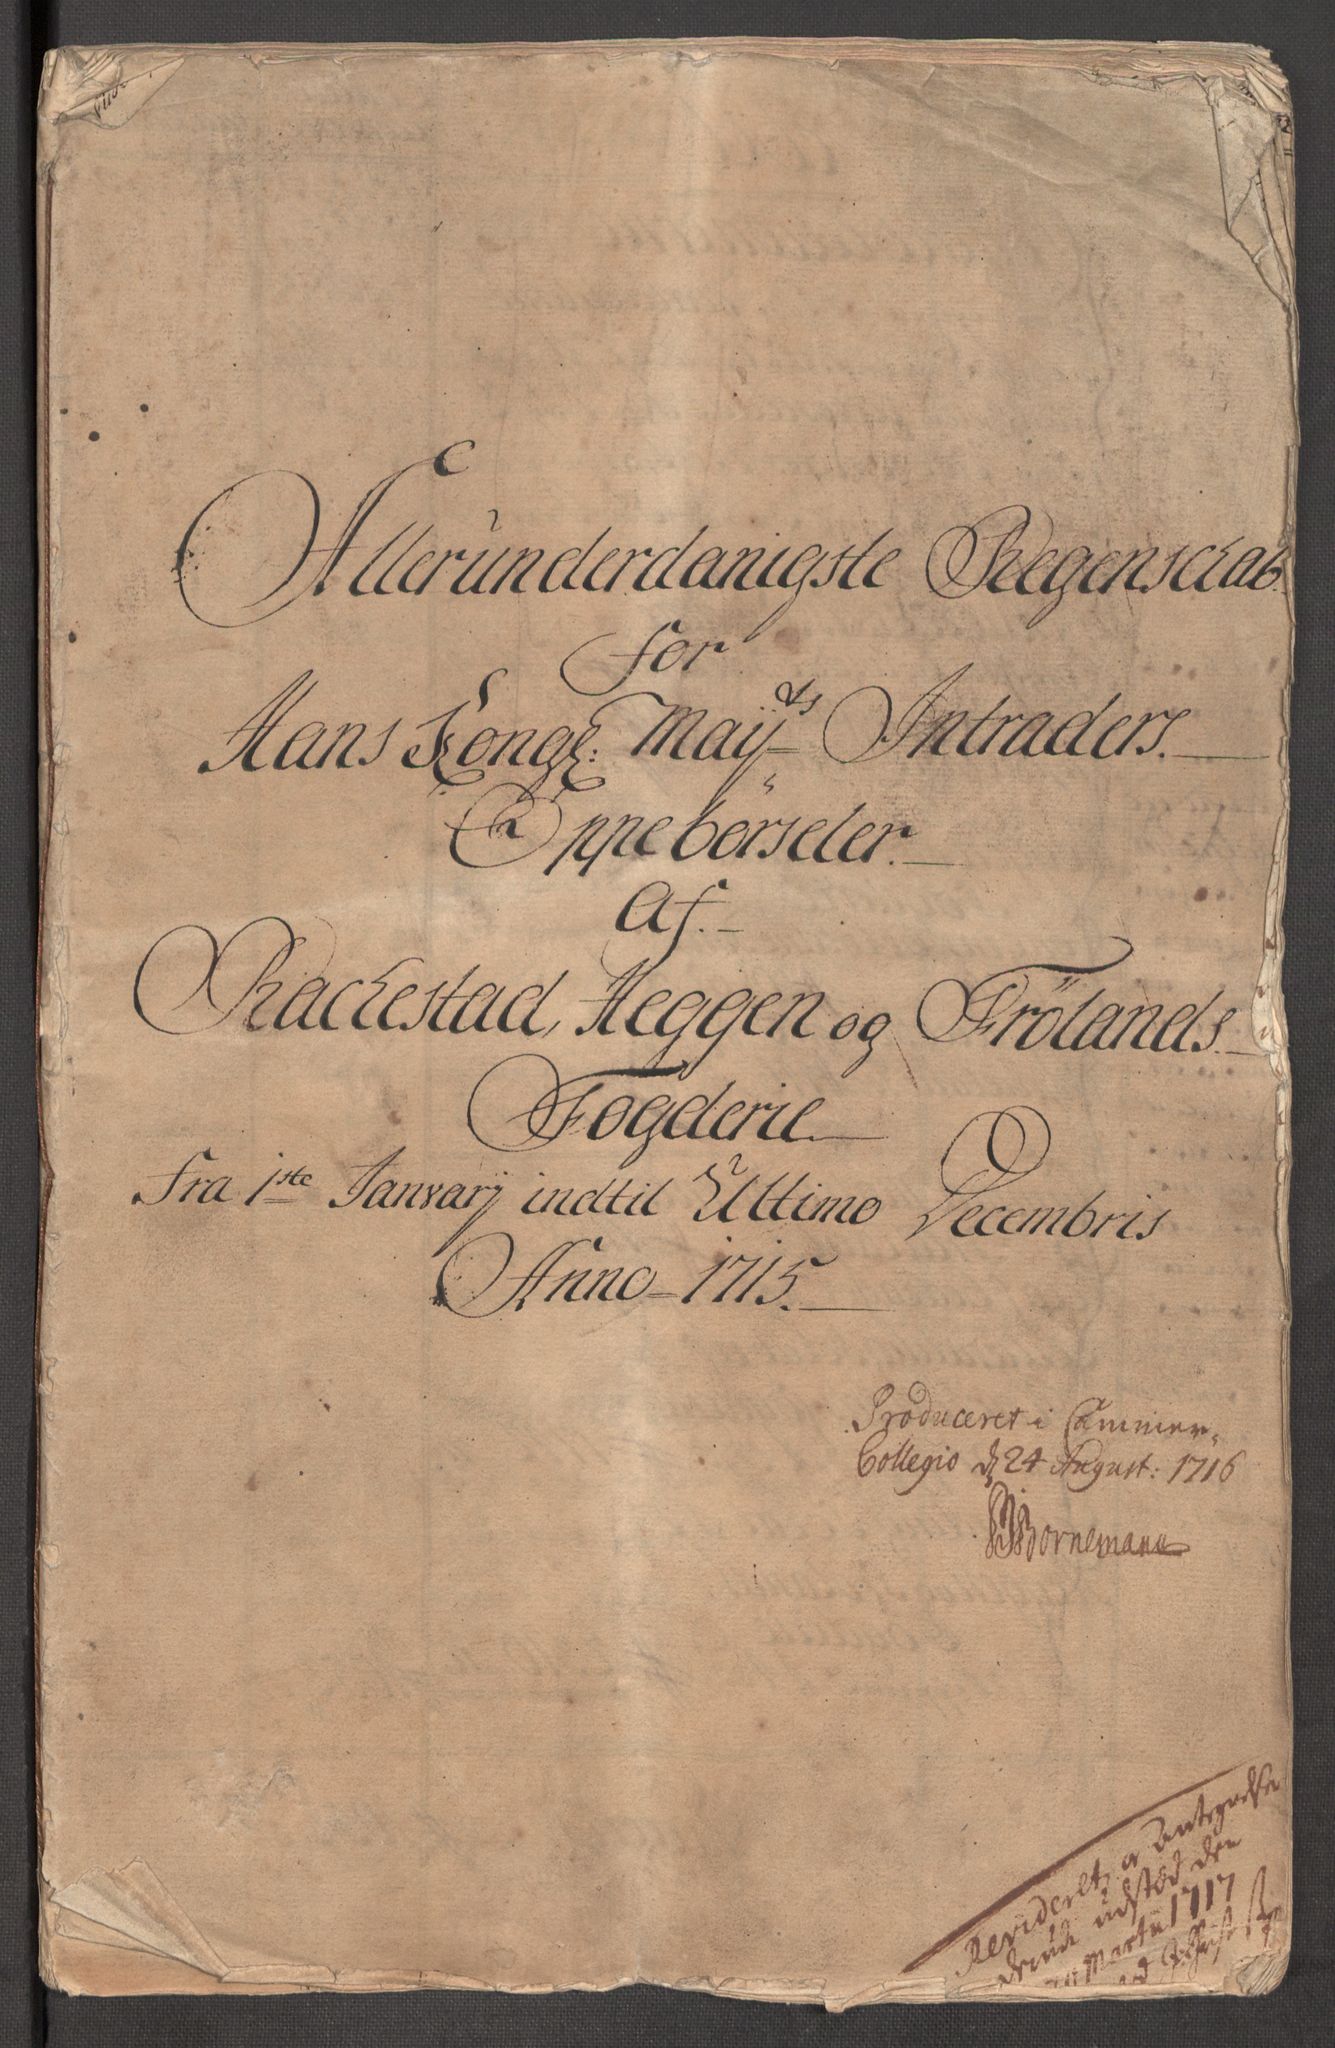 Allerunderdanigste Regenschab
for
Hans Kongl: Maÿ-ds Intraders
Oppebørseler
Af
Rackestad, Heggen og Frölands
Fogderie
Fra 1ste Janvarij indtil Ultimo Decembris
Anno 1715.
Produceret i Cammer-
Collegio d 24 August: 1716
Bornemann
Revideret, og Antegnelser
derudi udsted den
Martii 1717